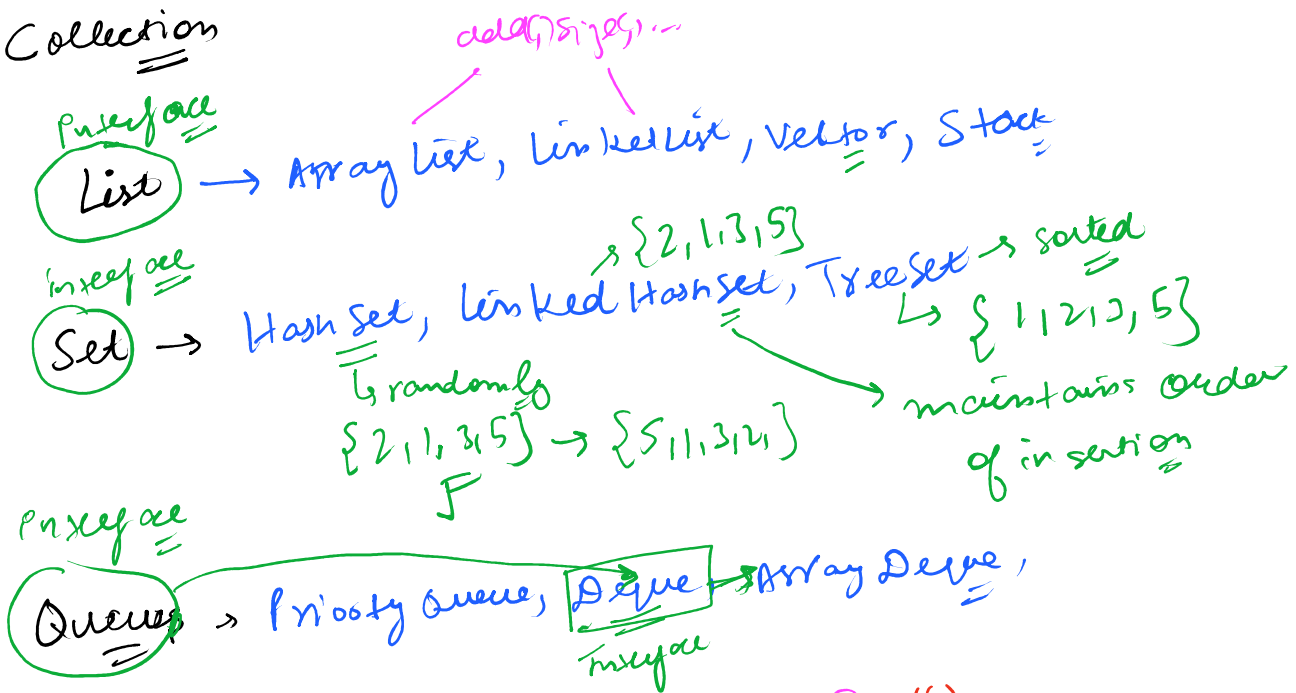 Collection
add(), size(), ...
Interface
List → ArrayList, LinkedList, Vector, Stack
{2,1,3,5}
interface
Set → HashSet, Linked HashSet, TreeSet → sorted
{1,2,3,5}
randomly
maintains order
{2,1,3,5} → {5,1,3,2,}
of insertion
Interface
Queue → Priority Queue, Deque → Array Deque,
Interface